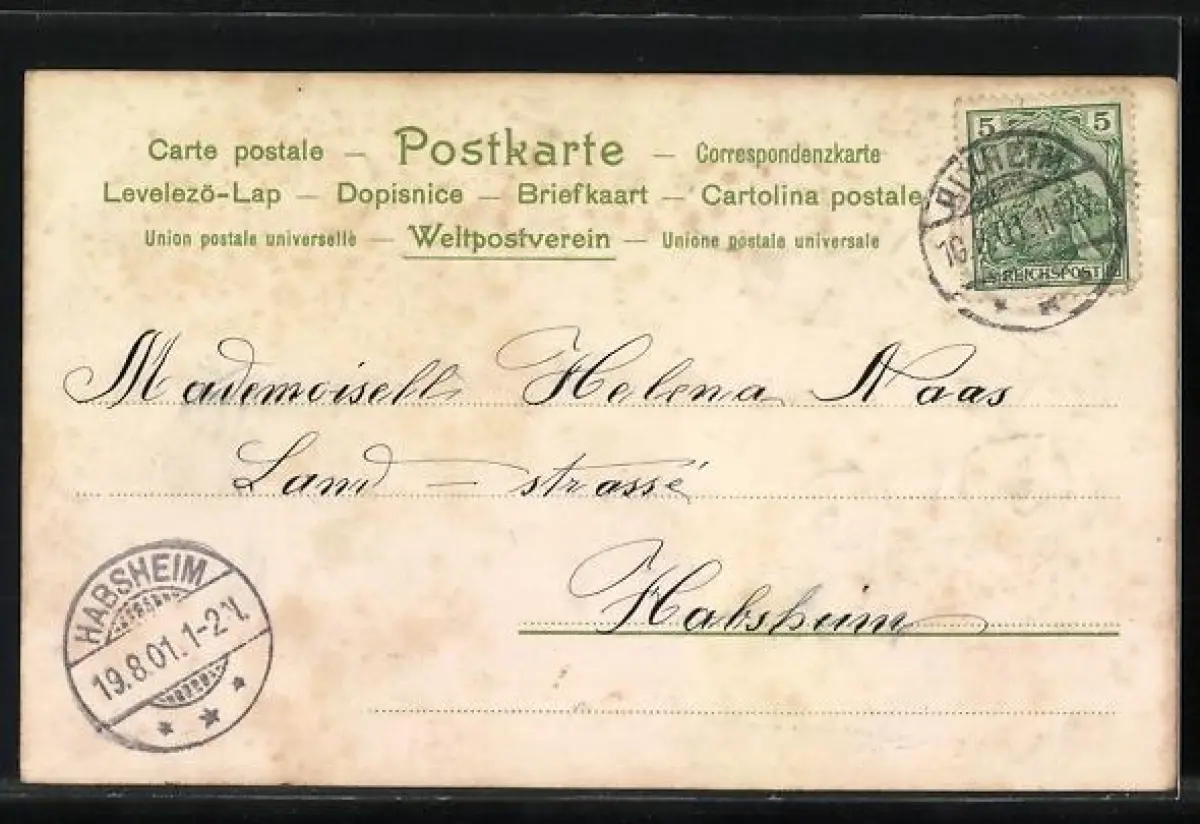 Carte postale — Postkarte — Correspondenzkarte
Levelező-Lap — Dopisnice — Briefkaart — Cartolina postale
Union postale universelle — Weltpostverein — Unione postale universale
5 5
RIXHEIM
.01. 11-12V.
REICHSPOST
Mademoiselle Helena Naas
Land-strassé
Habsheim
HABSHEIM
19.8.01. 1-2V.